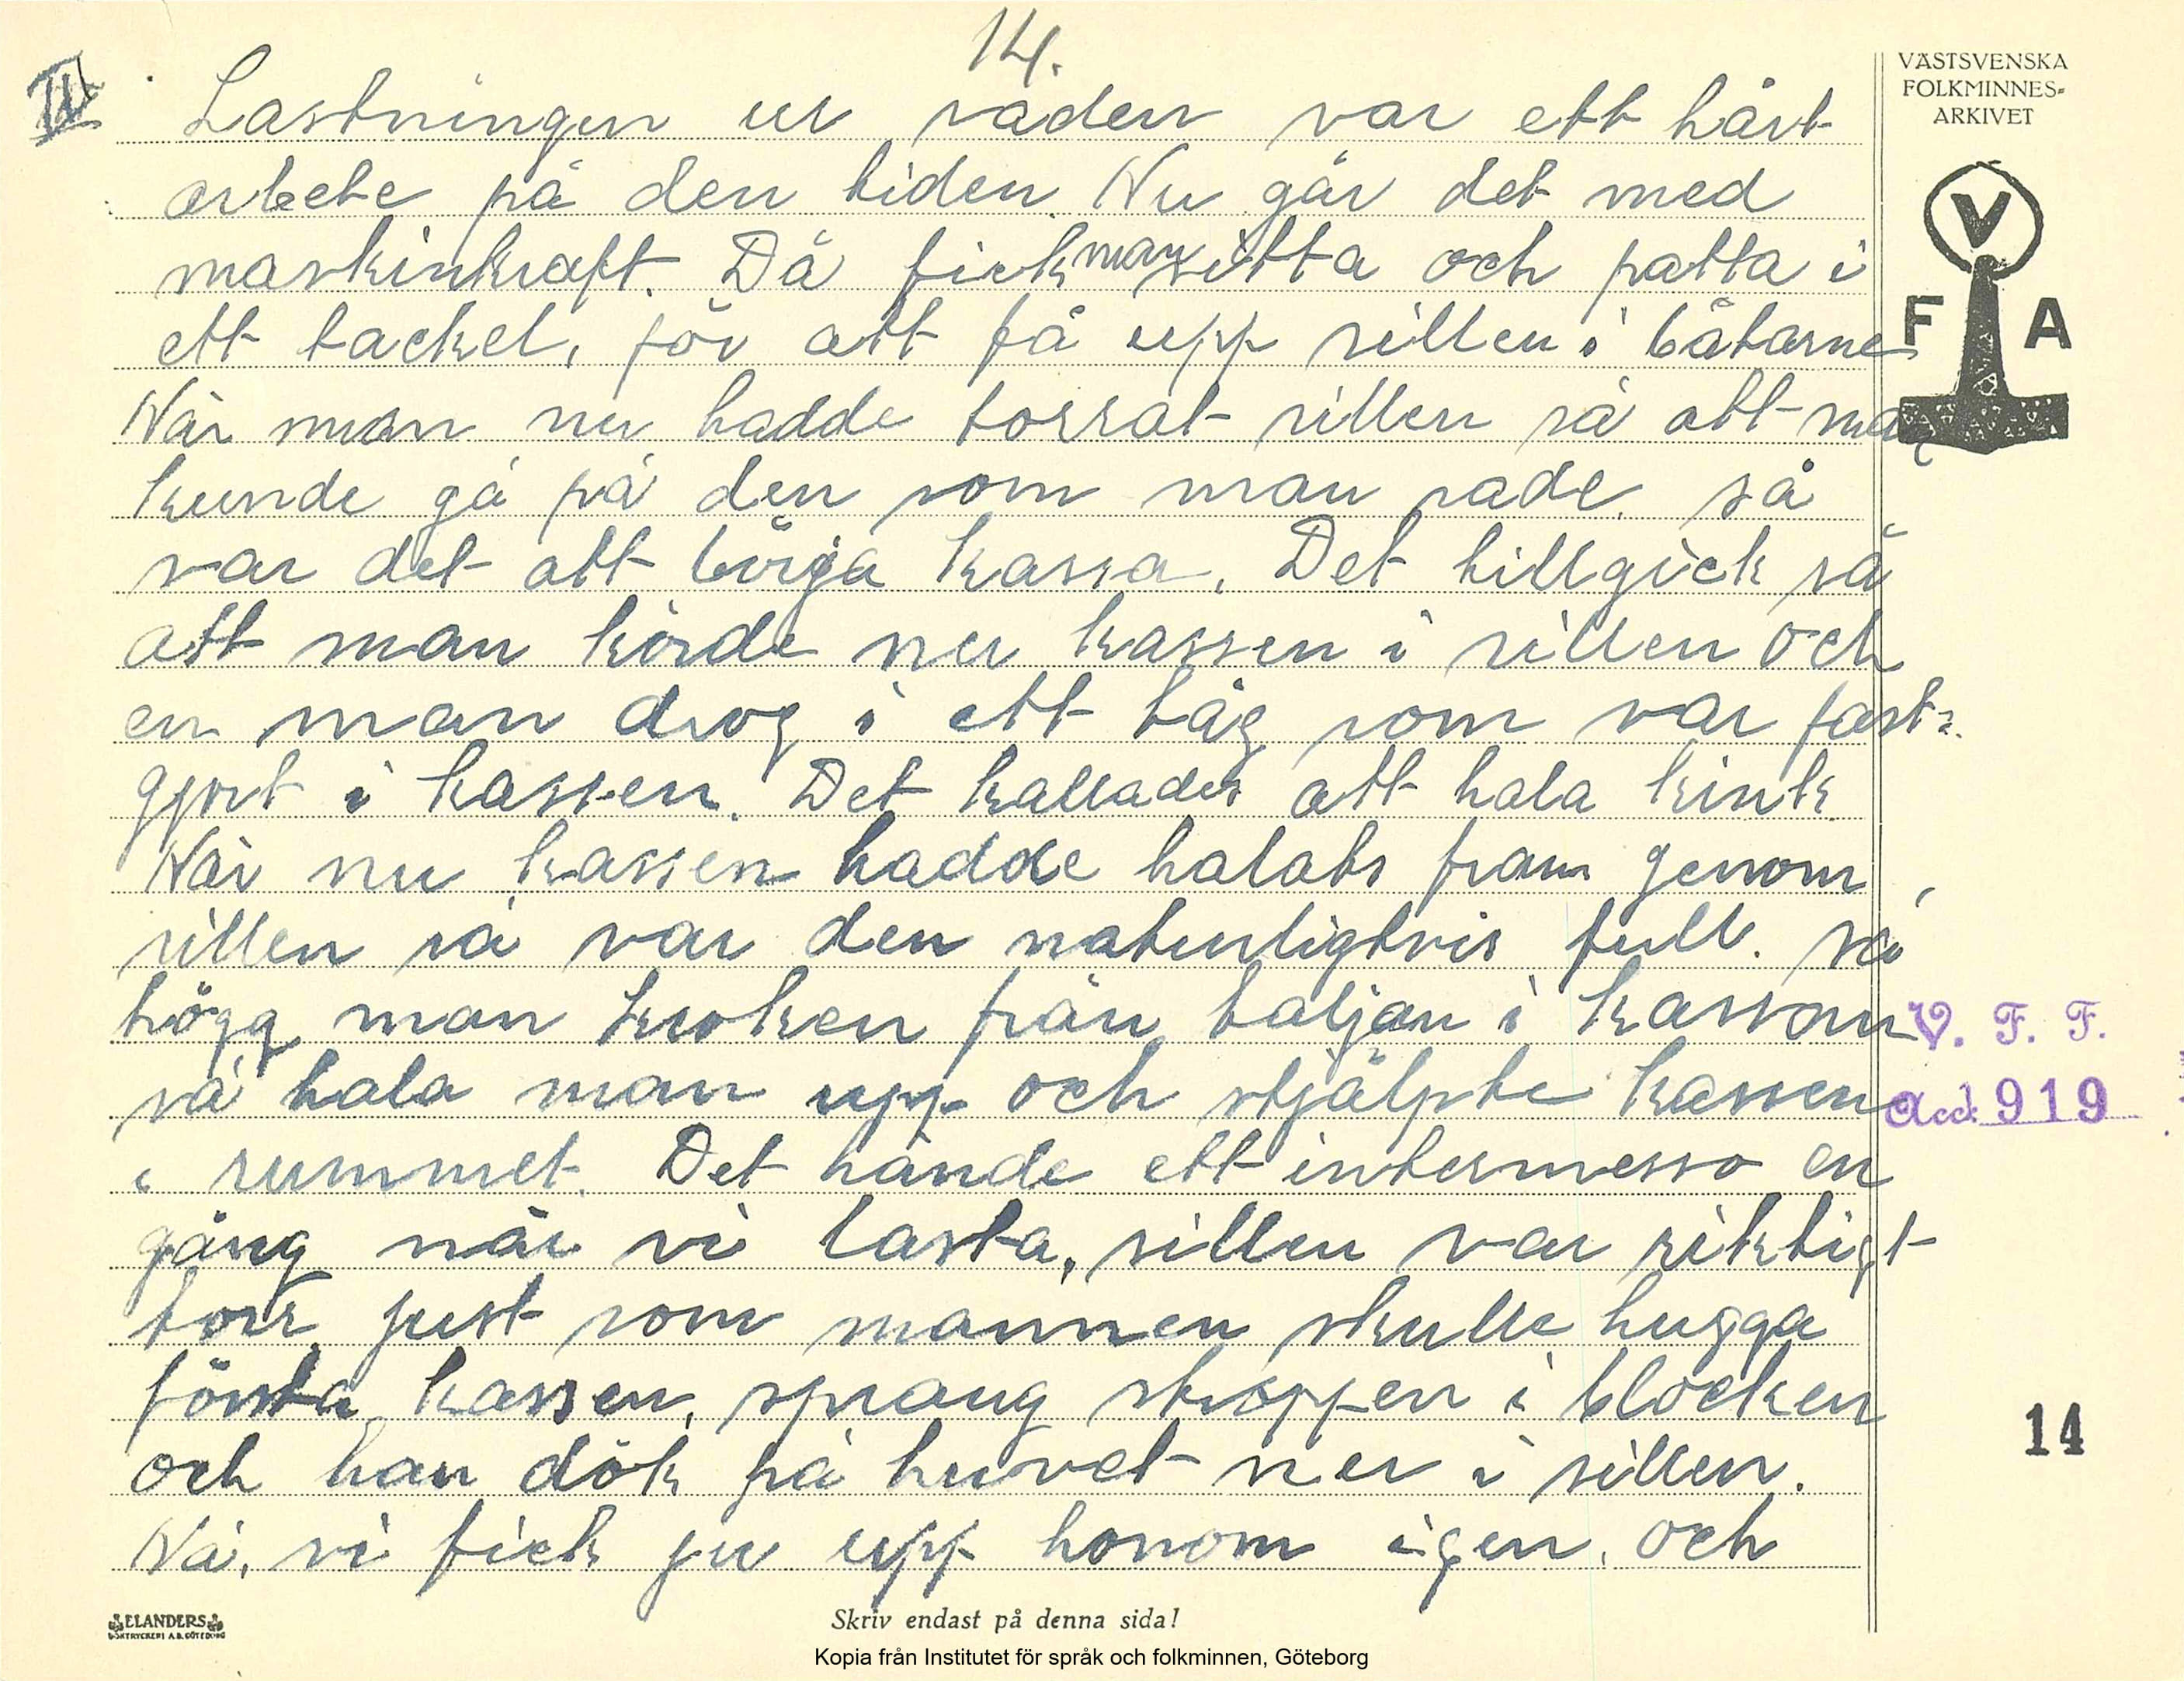 14.
III
Lastningen ur vaden var ett hårt
arbete på den tiden. Nu går det med
maskinkraft. Då fick man sitta och patta i
ett tackel, för att få upp sillen i båtarne
När man nu hadde torrat sillen så att man
kunde gå på den som man sade, så
var det att börja kassa. Det tillgick så
att man körde ner kassen i sillen och
en man drog i ett tåg som var fast=
gjort i kassen. Det kallades att hala kink
När nu kassen hadde halats fram genom
sillen så var den naturligtvis full. så
högg man kroken från taljan i kassan
så hala man upp och stjälpte kassen
i rummet. Det hände ett intermesso en
gång när vi lasta, sillen var riktigt
torr just som mannen skulle hugga
första kassen, sprang stroppen i blocken
och han dök på huvet ner i sillen.
Nå, vi fick ju upp honom igen, och
VÄSTSVENSKA
FOLKMINNES=
ARKIVET
V
F A
V. F. F.
Acc. 919
14
ELANDERS
BOKTRYCKERI A.B. GÖTEBORG
Skriv endast på denna sida!
Kopia från Institutet för språk och folkminnen, Göteborg